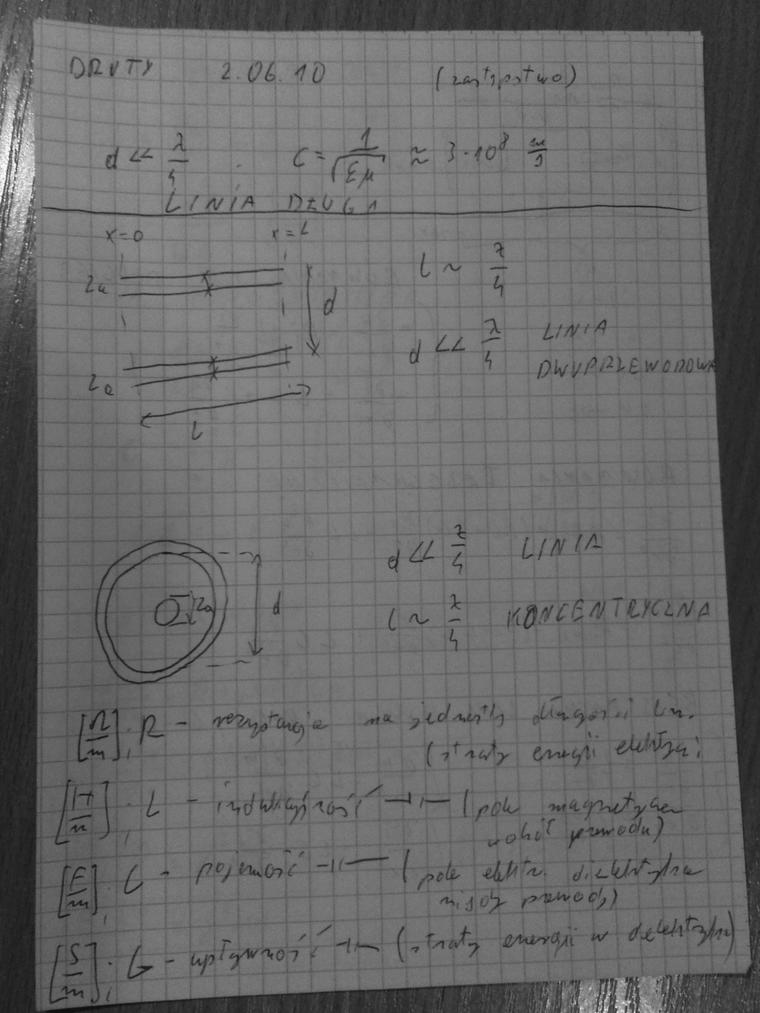 DRUTY 2.06.10 (zastępstwo)
d << λ/4 . C = 1/√εμ ≈ 3·10⁸ m/s
LINIA DŁUGA
x=0 x=L
2a d l ~ λ/4
d << λ/4 LINIA
DWUPRZEWODOWA
2a
L
d << λ/4 LINIA
2a d l ~ λ/4 KONCENTRYCZNA
[Ω/m]; R - rezystancja na jednostkę długości lin.
(straty energii elektrycz
[H/m]; L - indukcyjność —||— (pole magnetyczne
wokół przewodu)
[F/m]; C - pojemność —||— (pole elektr. dielektryka
między przewody)
[S/m]; G - upływność —||— (straty energii w dielektryku)